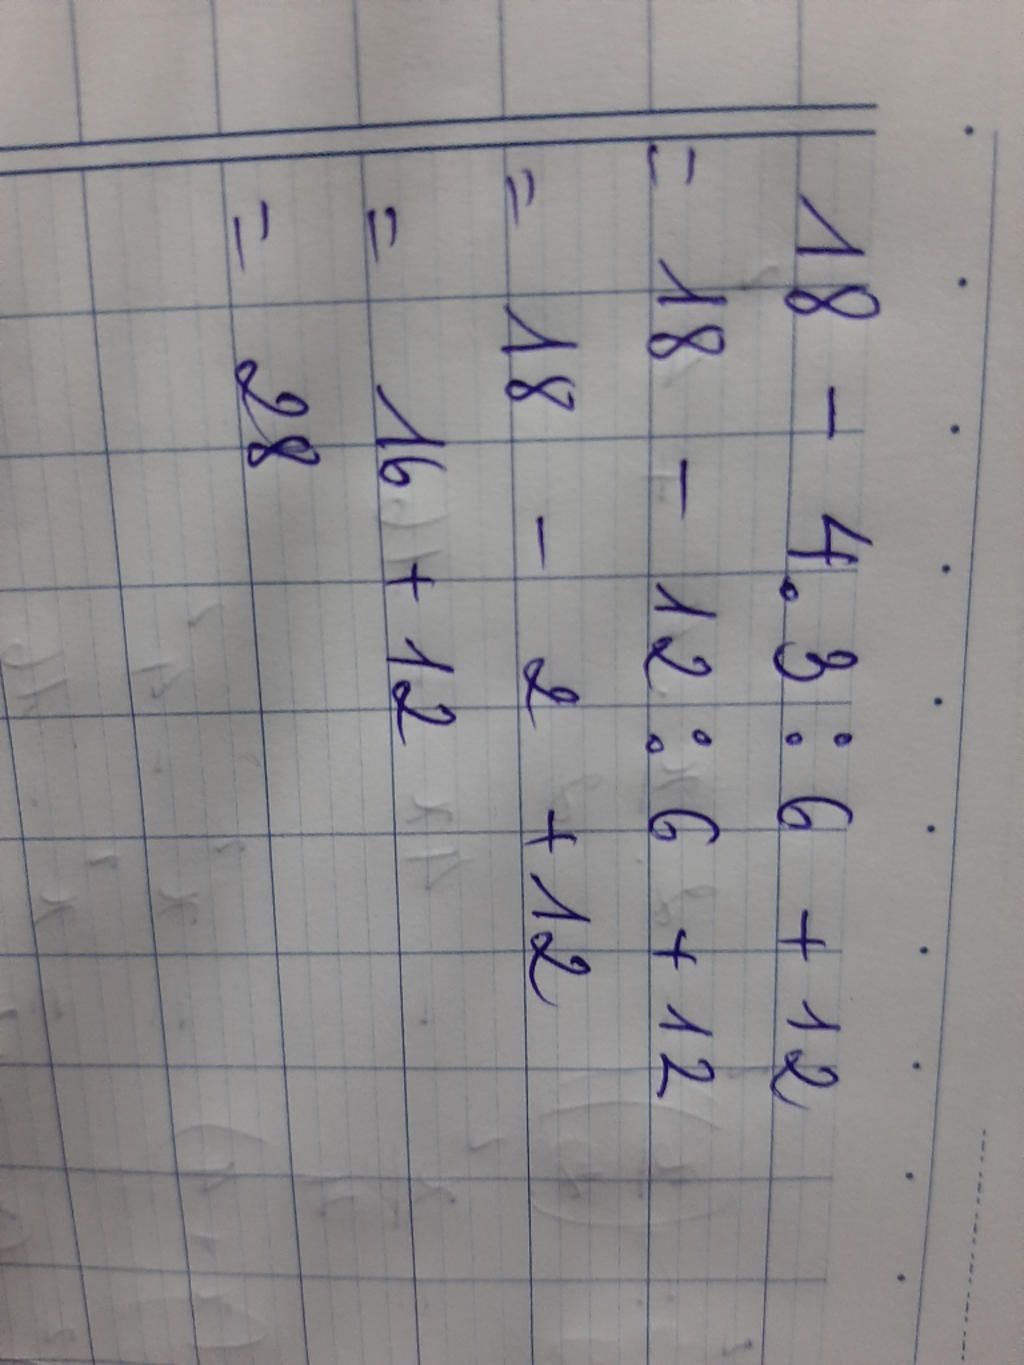 18 - 4.3 : 6 + 12
= 18 - 12 : 6 + 12
= 18 - 2 + 12
= 16 + 12
= 28